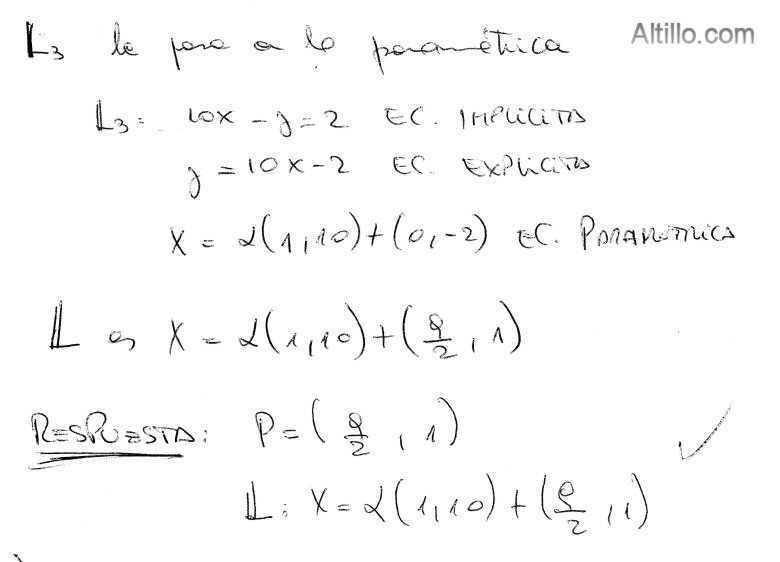 Altillo.com
L₃ la paso a la paramétrica
L₃: 10x - y = 2 EC. IMPLICITA
y = 10x - 2 EC. EXPLICITA
X = α(1,10)+(0,-2) EC. PARAMETRICA
𝕃 es X = α(1,10)+(9/2, 1)
RESPUESTA: P = (9/2, 1)
𝕃: X = α(1,10)+(9/2, 1)